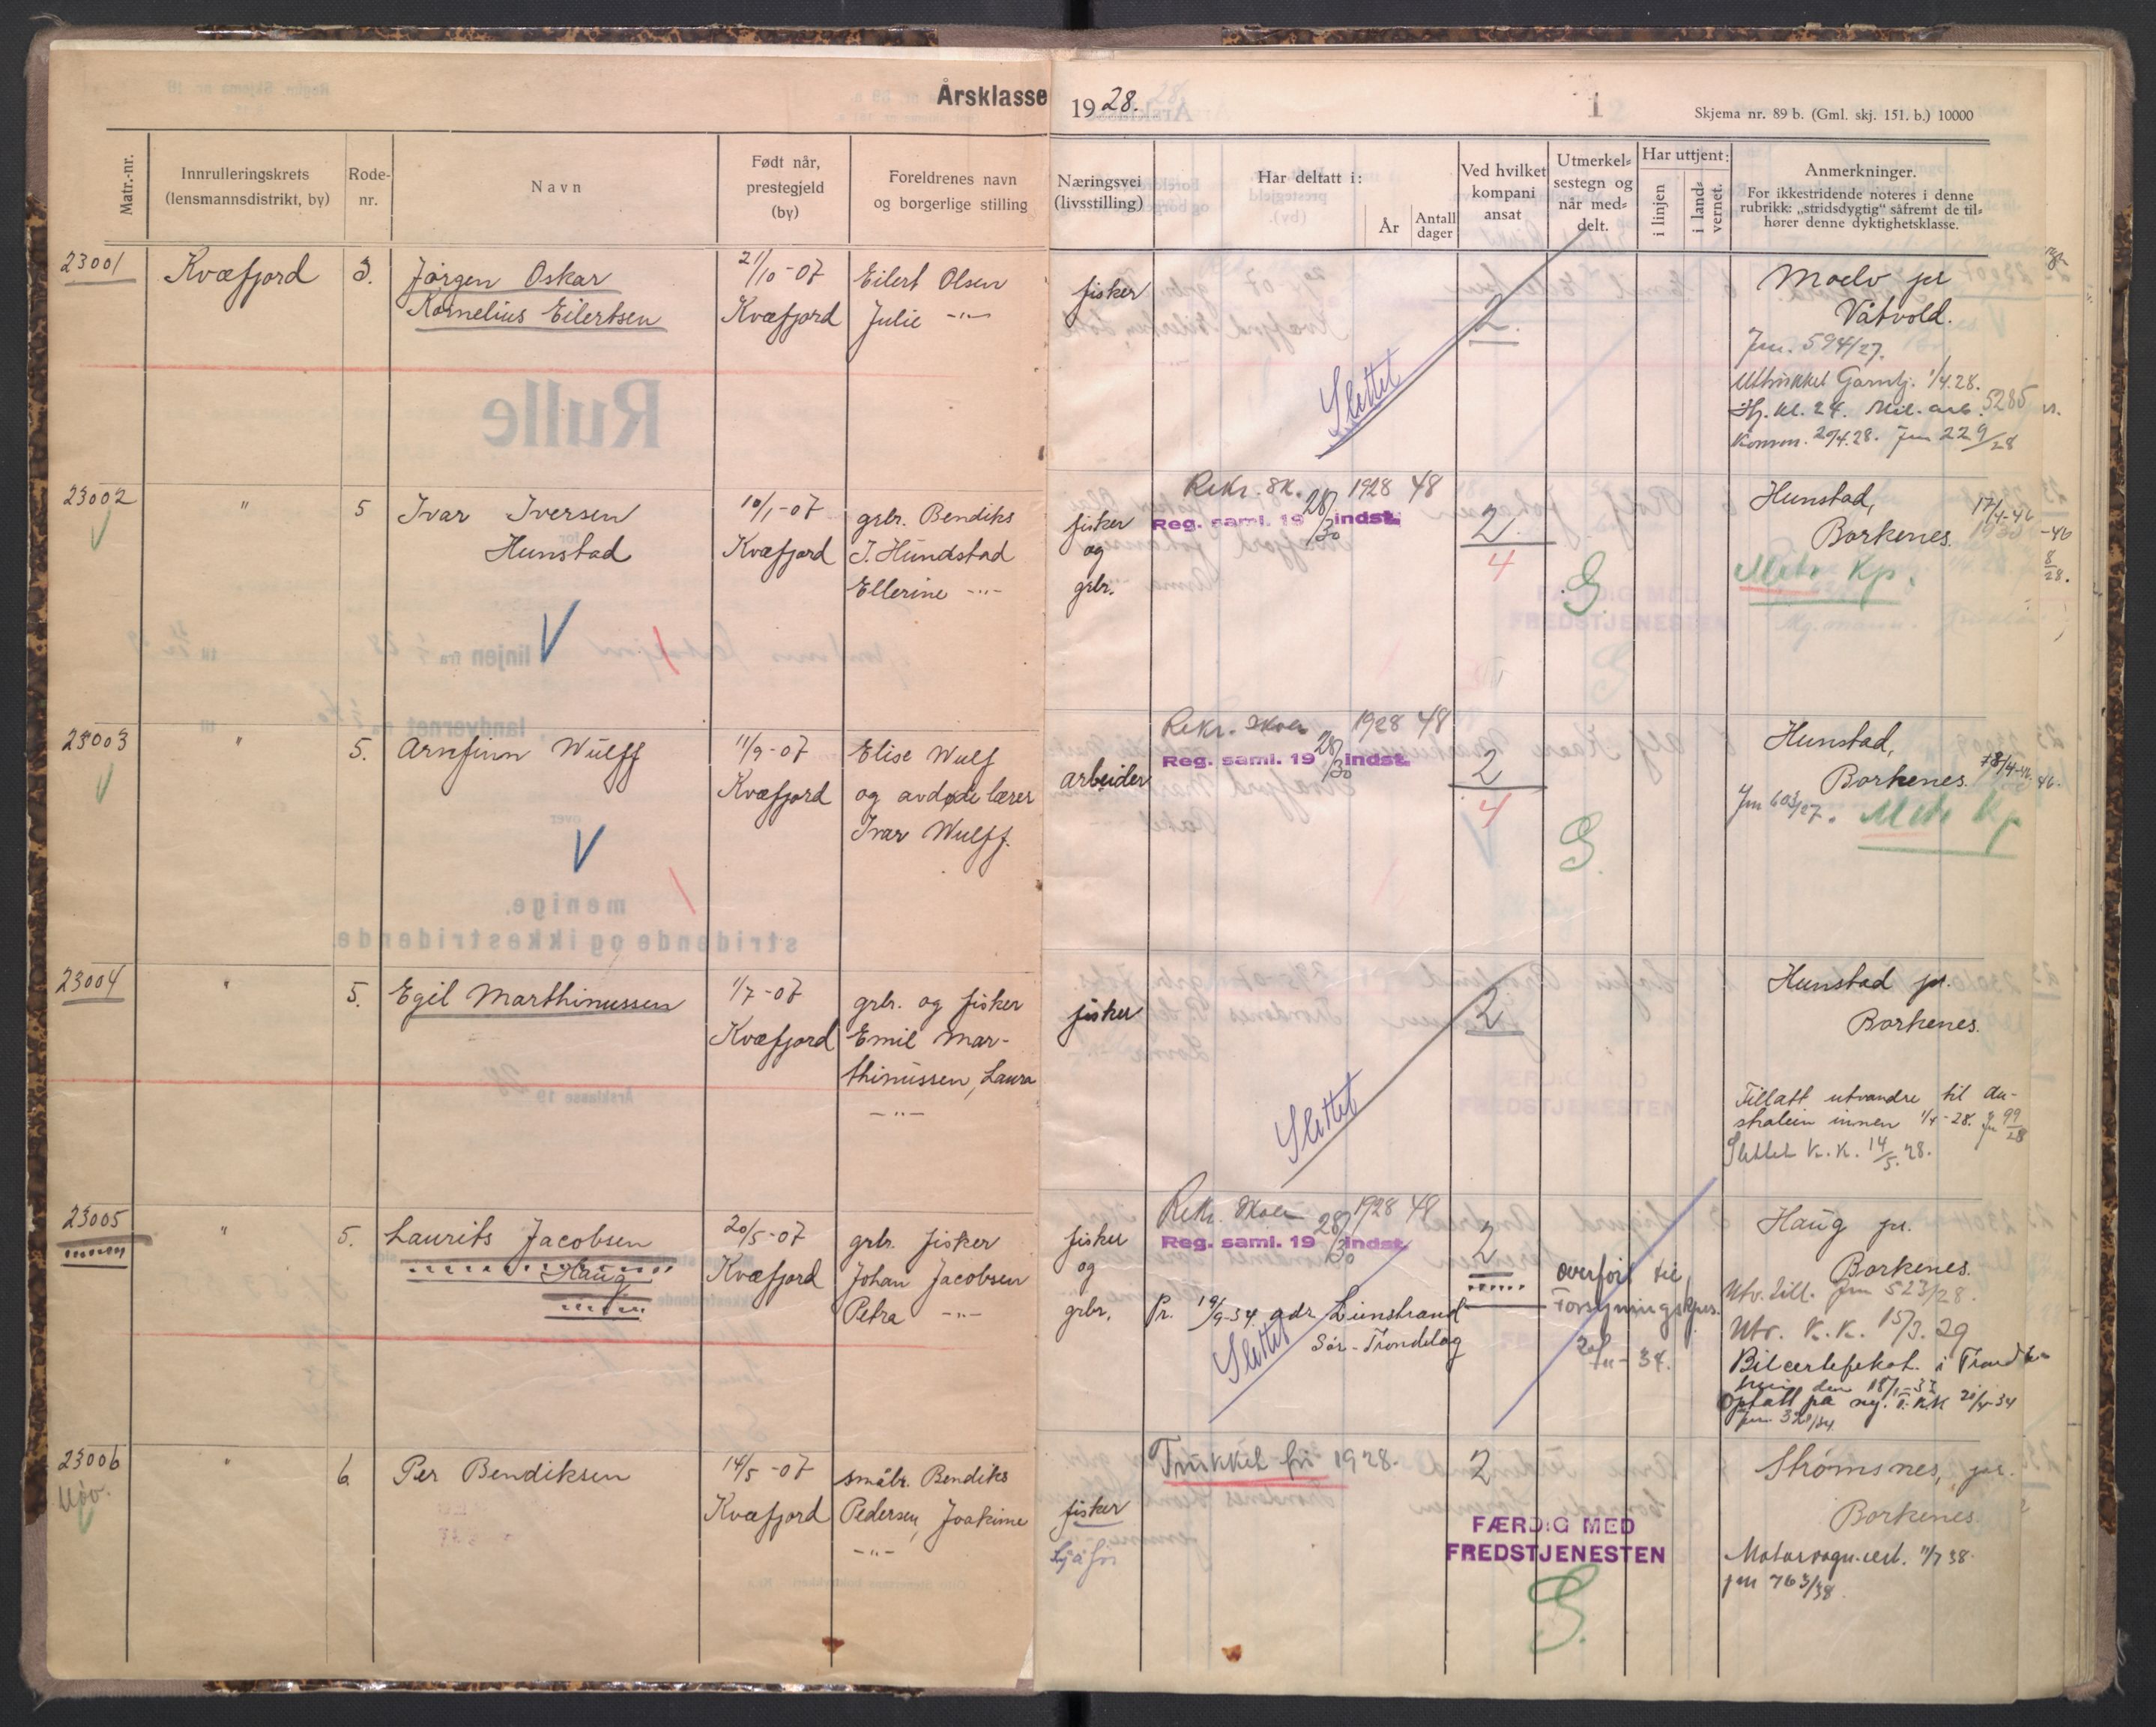 Årsklasse 1928.
1
Skjema nr. 89 b. (Gml. skj. 151. b.) 10000
Matr.-nr.
Innrulleringskrets (lensmannsdistrikt, by)
Rode-nr.
Navn
Født når, prestegjeld (by)
Foreldrenes navn og borgerlige stilling
Næringsvei (livsstilling)
Har deltatt i:
År
Antall dager
Ved hvilket kompani ansat
Utmerkelsestegn og når meddelt.
Har uttjent:
i linjen
i landvernet.
Anmerkninger.
For ikkestridende noteres i denne rubrikk: „stridsdygtig" såfremt de tilhører denne dyktighetsklasse.
23001
Kvæfjord
3.
Jørgen Oskar
Kornelius Eilertsen
21/10-07
Kvæfjord
Eilert Olsen
Julie -"-
fisker
Slettet
2.
Moelv pr
Våtvold.
Jnr. 594/27.
Uttrukket Garntj. 1/4.28.
Hj. kl. 24. Mil. arb. 5285
Komm. 20/4.28. Jnr 229/28
23002
"
5
Ivar Iversen
Hunstad
10/1-07
Kvæfjord
grbr. Bendiks
I. Hundstad
Ellerine -"-
fisker
og
grbr.
Rekr. sk. 1928 48
Reg. saml. 19 28/30 indst.
2.
4
S.
Hunstad,
Borkenes.
17/4-46
Mctr Kp.
23003
"
5.
Arnfinn Wulff
11/9-07
Kvæfjord
Elise Wulf
og avdøde lærer
Ivar Wulff.
arbeider
Rekr. skole 1928 48
Reg. saml. 19 28/30 indst.
2
4
S.
Hunstad,
Borkenes.
Jnr 603/27.
Mctr Kp
23004
"
5.
Egil Marthinussen
1/7-07
Kvæfjord
grbr. og fisker
Emil Mar-
thinussen, Laura
-"-
fisker
Slettet
2
Hunstad pr.
Borkenes.
Tillatt utvandre til Au-
stralien innen 1/4-28. Jn 99/28
Slettet K.K. 14/5.28.
23005
"
5.
Laurits Jacobsen
Haug
20/5-07
Kvæfjord
grbr. fisker
Johan Jacobsen
Petra -"-
fisker
og
grbr.
Rekr. skole 1928 48
Reg. saml. 19 28/30 indst.
Pr. 19/9-34 adr. Leinstrand
Sør-Trøndelag
Slettet
2
overført til
Forsyningskpn.
20/11-34.
Haug pr.
Borkenes.
Utv. till. Jnr 523/28.
Utv. K.K. 15/3.29
Bilcertifikat i Trondh
heim den 18/1-33
Optatt på ny. T.KK 20/4-34
jnr. 320/34
23006
"
6
Per Bendiksen
14/5-07
Kvæfjord
småbr. Bendiks
Pedersen, Joakime
-"-
fisker
Sjåfør
Trukket fri 1928.
2
FÆRDIG MED
FREDSTJENESTEN
S.
Strømsnes, pr.
Borkenes.
Motorvogn.sert. 11/7 38.
jnr 763/38.